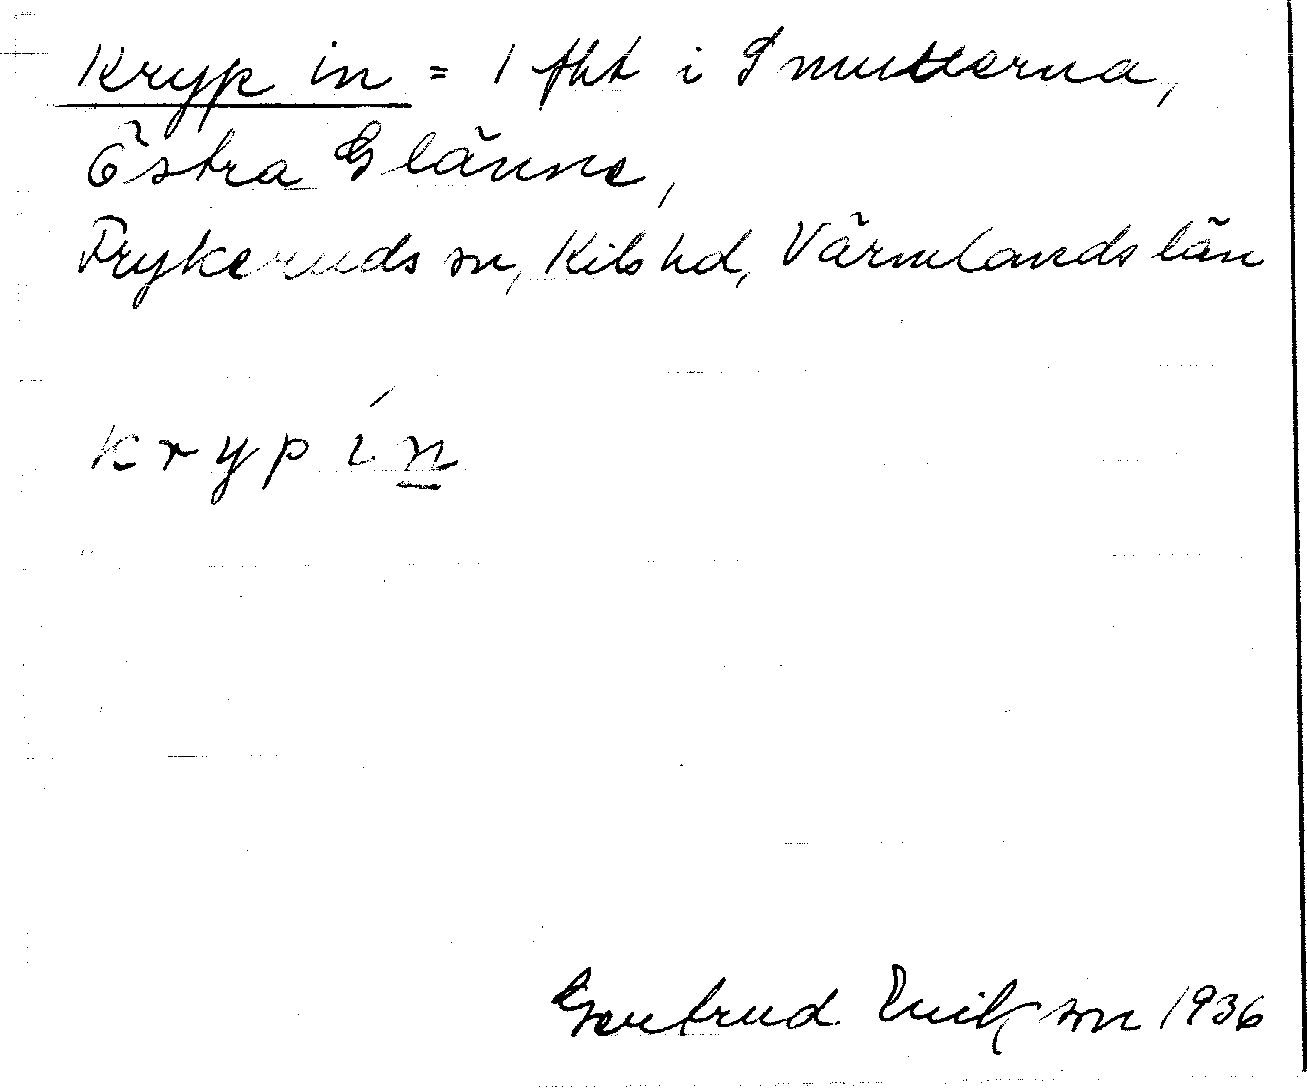 Kryp in = 1 fht i Smutterna,
Östra Glänne,
Frykeruds sn, Kils hd, Värmlands län
k r y p í n
Gertrud Erikson 1936